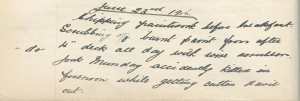 June 23rd 191
Chipping paintwork before breakfast.
Scrubbing & burnt paint from after
- do 4" deck all day with wire scrubbers.
Jock Munday accidently killed in
forenoon while getting cutter davit
out.